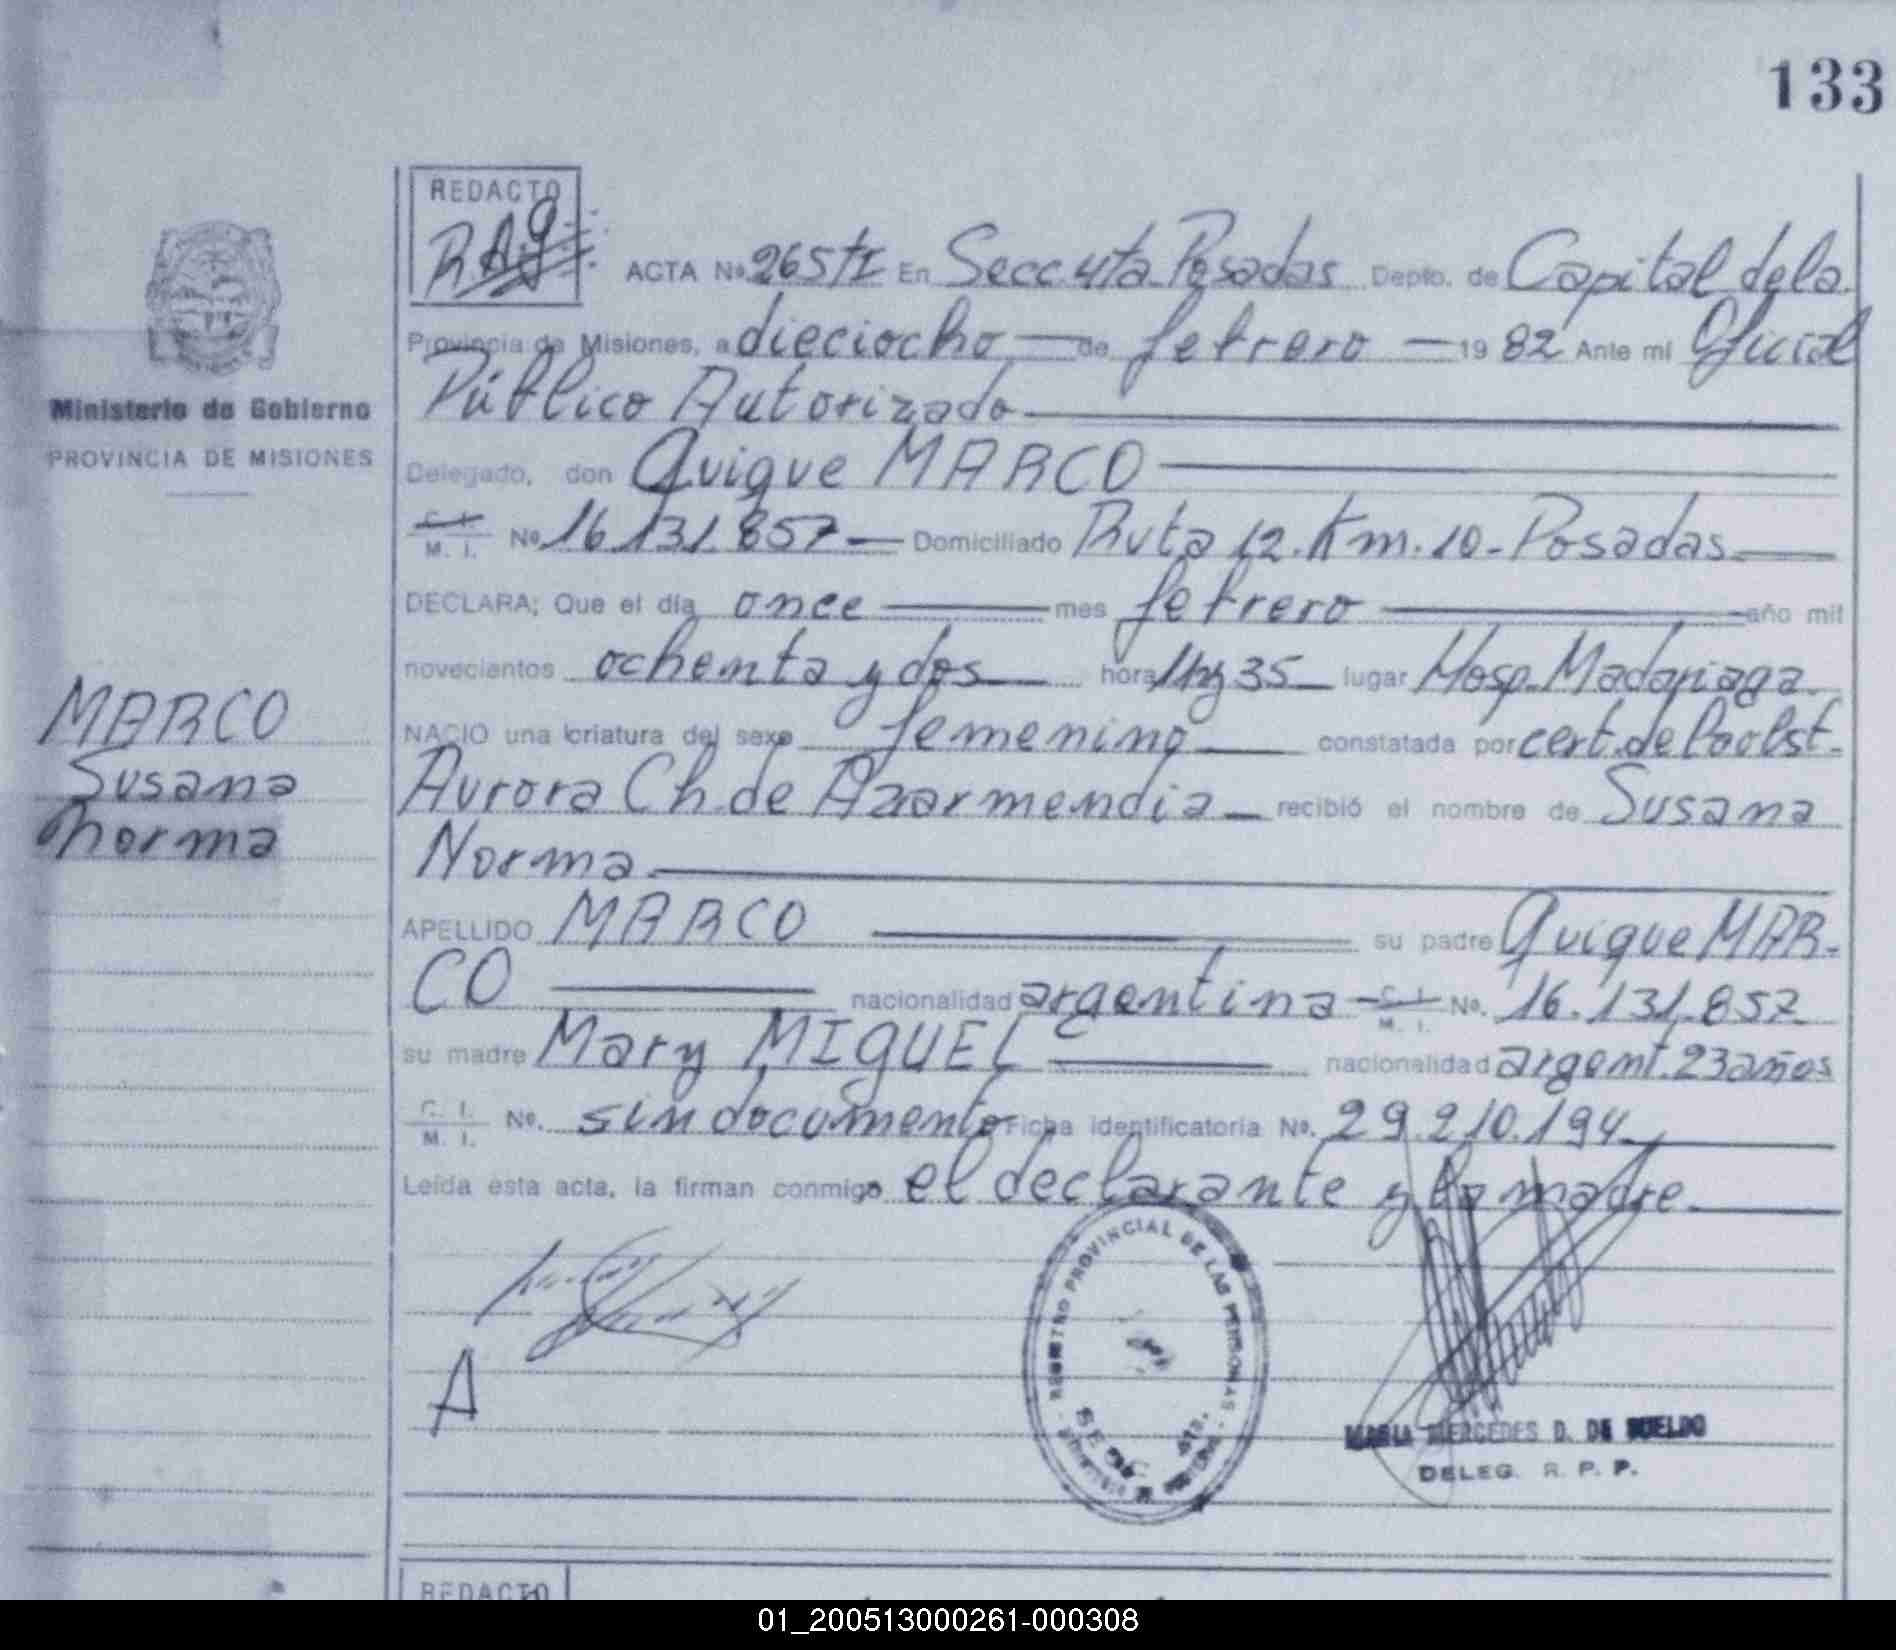 133
REDACTO
ACTA Nº 265 tI En Secc. 4ta. Posadas Depto. de Capital dela
Provincia de Misiones, a dieciocho de febrero 19 82 Ante mi Oficial
Público Autorizado
Ministerio de Gobierno
PROVINCIA DE MISIONES
Delegado, don Quique MARCO
C. I.
M. I. Nº 16.131.857 Domiciliado Ruta 12. Km. 10 - Posadas
DECLARA; Que el día once mes febrero año mil
novecientos ochenta y dos hora 11hs 35 lugar Hosp. Madariaga.
MARCO
Susana
Norma
NACIO una criatura del sexo femenino constatada por cert. de
Aurora Ch. de Azarmendia recibió el nombre de Susana
Norma
APELLIDO MARCO su padre Quique MAR-
CO nacionalidad argentina C. I.
M. I. Nº. 16.131.857
su madre Mary MIGUEL nacionalidad argent. 23 años
C. I.
M. I. Nº. sin documento Ficha identificatoria Nº. 29.210.194
Leída esta acta, la firman conmigo el declarante y la madre
REGISTRO PROVINCIAL DE LAS PERSONAS
SECC. 4ta.
A
MARIA MERCEDES D. DE SUELDO
DELEG. R. P. P.
REDACTO
01_200513000261-000308